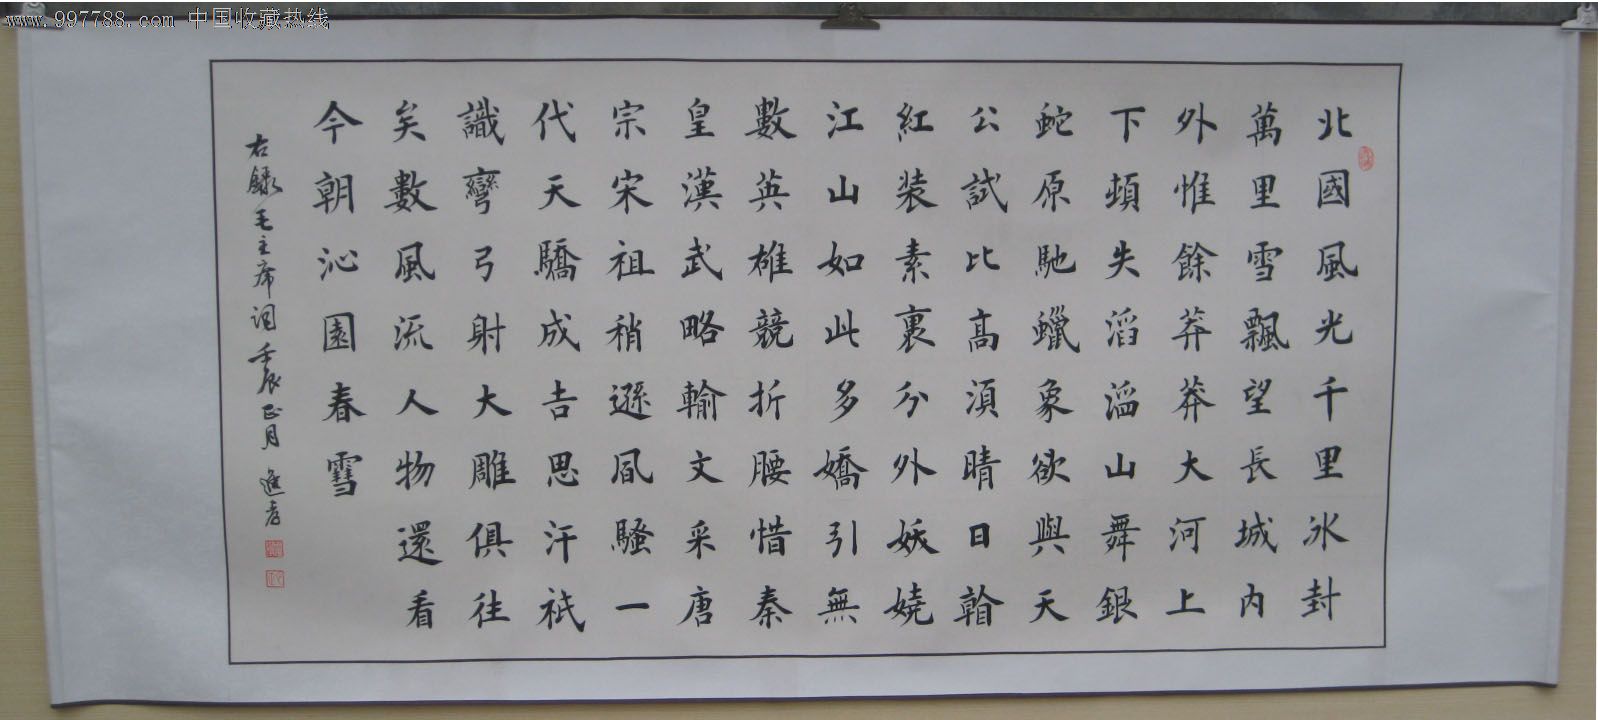 www.997788.com 中国收藏热线
北國風光千里冰封
萬里雪飄望長城內
外惟餘莽莽大河上
下頓失滔滔山舞銀
蛇原馳蠟象欲與天
公試比高須晴日
紅装素裹分外妖嬈
江山如此多嬌引無
數英雄競折腰惜秦
皇漢武略輸文采唐
宗宋祖稍遜凬騷一
代天驕成吉思汗衹
識彎弓射大雕俱往
矣數風流人物還看
今朝沁園春雪
右録毛主席词壬辰正月進孝